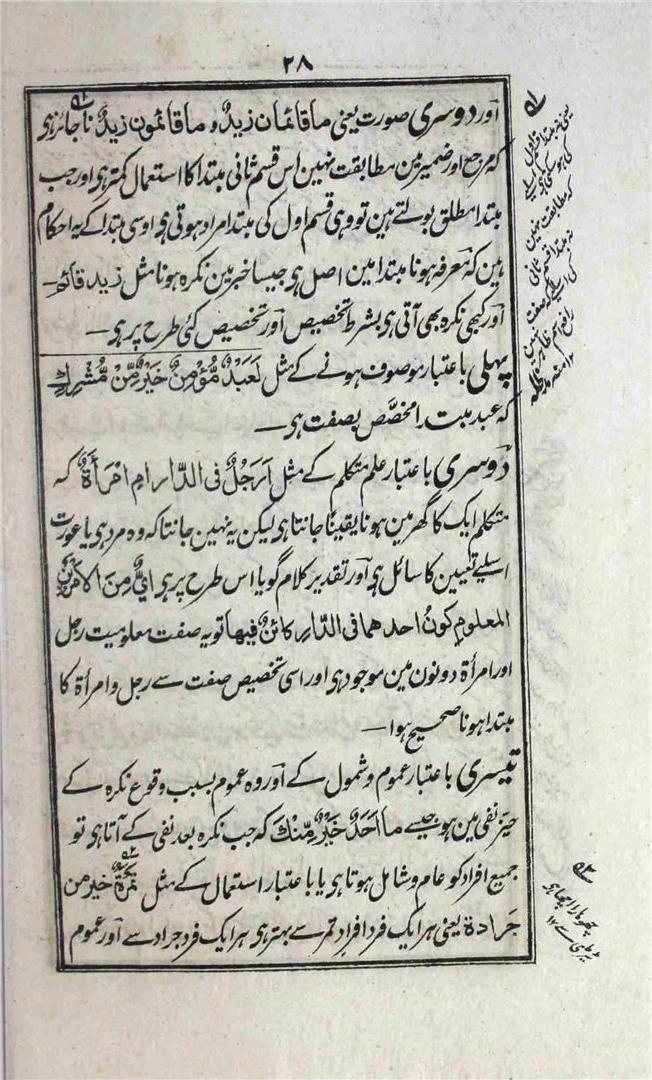 ۲۸
اور دوسری صورت یعنی ما قائمان زیدٌ و ما قائمون زیدٌ ناجائز ہی
کہ مرجع اور ضمیر مین مطابقت نہین اس قسم ثانی مبتدا کا استعمال کمتر ہی اور جب
مبتدا مطلق بولتے ہین تو وہی قسم اول کی مبتدا مراد ہوتی ہی اوسی مبتدا کے یہ احکام
ہین کہ معرفہ ہونا مبتدا مین اصل ہی جیسا خبر مین نکرہ ہونا مثل زید قائم ــ
اور کبھی نکرہ بھی آتی ہی بشرط تخصیص اور تخصیص کئی طرح پر ہی ــ
پہلی باعتبار موصوف ہونے کے مثل لَعَبْدٌ مُّؤْمِنٌ خَيْرٌ مِّنْ مُّشْرِكٍ
کہ عبد مبتدا مخصَّص بصفت ہی ــ
دوسری باعتبار علم متکلم کے مثل اَرَجُلٌ فی الدَّارِ امِ امْرَأَةٌ کہ
متکلم ایک کا گھر مین ہونا یقیناً جانتا ہی لیکن یہ نہین جانتا کہ وہ مرد ہی یا عورت
اسلیے تعیین کا سائل ہی اور تقدیر کلام گویا اس طرح پر ہی ایٌّ مِنَ الاَمْرَيْنِ
المعلومِ کونُ احدهما فی الدَّارِ کائنٌ فیها تو یہ صفت معلومیت رجل
اور امرأة دونون مین موجود ہی اور اسی تخصیص صفت سے رجل و امرأة کا
مبتدا ہونا صحیح ہوا ــ
تیسری باعتبار عموم و شمول کے اور وہ عموم بسبب وقوع نکرہ کے
حیّز نفی مین ہو جیسے ما احَدٌ خَيْرٌ مِّنْكَ کہ جب نکرہ بعد نفی کے آتا ہی تو
جمیع افراد کو عام و شامل ہوتا ہی یا باعتبار استعمال کے مثل تمرةٌ خیر من
جَرادة یعنی ہر ایک فرد افراد تمر سے بہتر ہی ہر ایک فرد جراد سے اور عموم